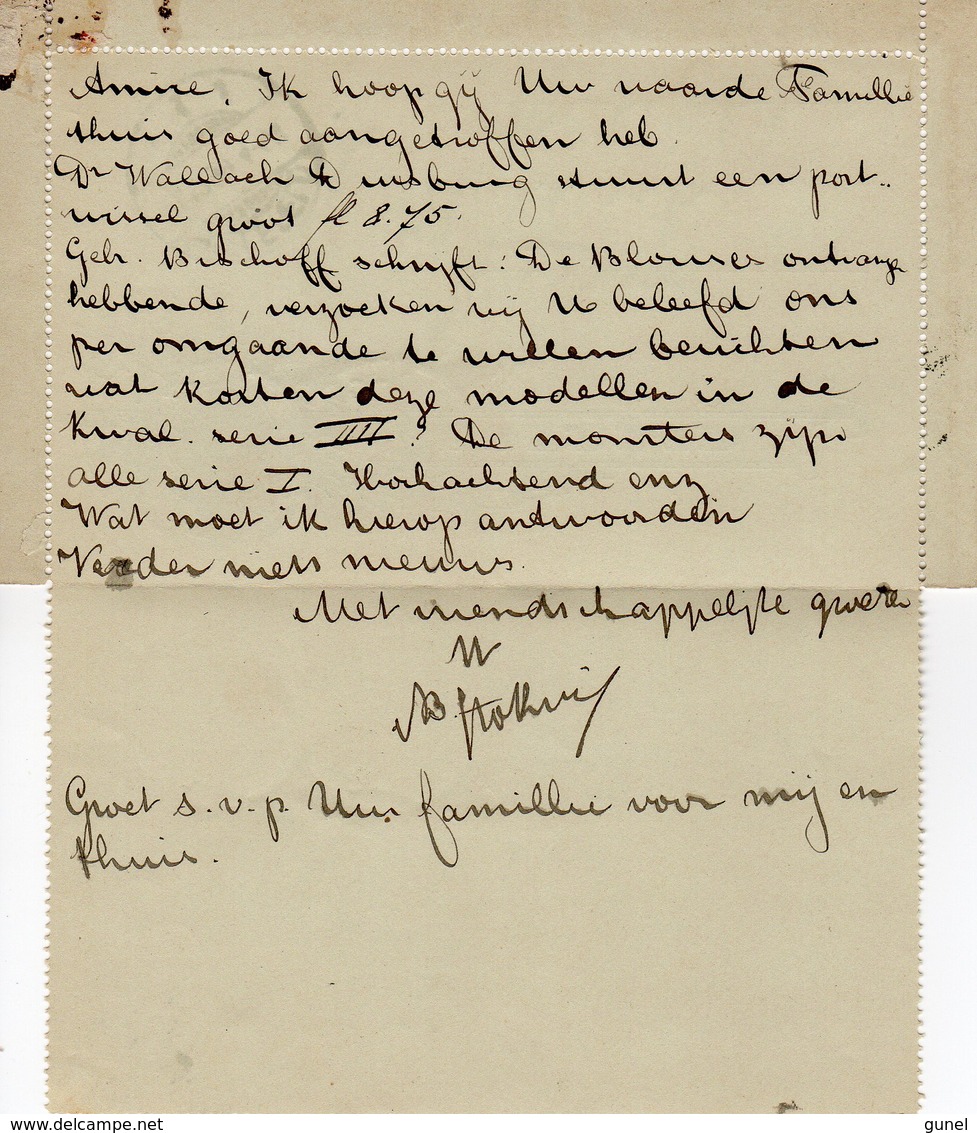 Amice, Ik hoop gij Uw waarde Famillie
thuis goed aangetroffen heb.
Dr Wallach Duisburg stuurt een post-
wissel groot fl 8.75.
Gebr. Bischoff schrijft: De Blouses ontvange
hebbende, verzoeken wij U beleefd ons
per omgaande te willen berichten
wat kosten deze modellen in de
Kwal. serie III? De monsters zijn
alle serie I. Hochachtend enz
Wat moet ik hierop antwoorden
Verder niets nieuws.
Met vriendschappelijke groeten
Groet s.v.p. Uw familie voor mij en
thuis.
gunel